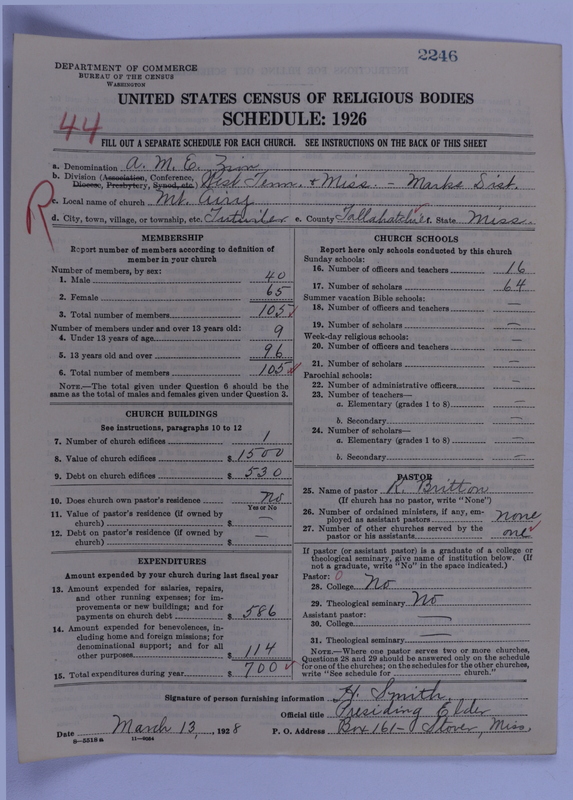 2246
DEPARTMENT OF COMMERCE
BUREAU OF THE CENSUS
WASHINGTON
UNITED STATES CENSUS OF RELIGIOUS BODIES
SCHEDULE: 1926
44
FILL OUT A SEPARATE SCHEDULE FOR EACH CHURCH. SEE INSTRUCTIONS ON THE BACK OF THIS SHEET
a. Denomination A. M. E. Zion
b. Division (Association, Conference, Diocese, Presbytery, Synod, etc.) West Tenn. & Miss. - Marks Dist.
R
c. Local name of church Mt. Airy
d. City, town, village, or township, etc. Tutwiler e. County Tallahatchie f. State Miss.
MEMBERSHIP
Report number of members according to definition of
member in your church
Number of members, by sex:
1. Male 40
2. Female 65
3. Total number of members 105
Number of members under and over 13 years old:
4. Under 13 years of age 9
5. 13 years old and over 96
6. Total number of members 105
NOTE.—The total given under Question 6 should be
same as the total of males and females given under Question 3.
CHURCH BUILDINGS
See instructions, paragraphs 10 to 12
7. Number of church edifices 1
8. Value of church edifices $1500
9. Debt on church edifices $530
10. Does church own pastor's residence No
Yes or No
11. Value of pastor's residence (if owned by
church) $ —
12. Debt on pastor's residence (if owned by
church) $ —
EXPENDITURES
Amount expended by your church during last fiscal year
13. Amount expended for salaries, repairs,
and other running expenses; for im-
provements or new buildings; and for
payments on church debt $ 586
14. Amount expended for benevolences, in-
cluding home and foreign missions; for
denominational support; and for all
other purposes $ 114
15. Total expenditures during year $ 700
CHURCH SCHOOLS
Report here only schools conducted by this church
Sunday schools:
16. Number of officers and teachers 16
17. Number of scholars 64
Summer vacation Bible schools:
18. Number of officers and teachers —
19. Number of scholars —
Week-day religious schools:
20. Number of officers and teachers —
21. Number of scholars —
Parochial schools:
22. Number of administrative officers —
23. Number of teachers—
a. Elementary (grades 1 to 8) —
b. Secondary —
24. Number of scholars—
a. Elementary (grades 1 to 8) —
b. Secondary —
PASTOR
25. Name of pastor R. Britton
(If church has no pastor, write "None")
26. Number of ordained ministers, if any, em-
ployed as assistant pastors none
27. Number of other churches served by the
pastor or his assistants one
If pastor (or assistant pastor) is a graduate of a college or
theological seminary, give name of institution below. (If
not a graduate, write "No" in the space indicated.)
Pastor: 0
28. College No
29. Theological seminary No
Assistant pastor:
30. College —
31. Theological seminary —
NOTE.—Where one pastor serves two or more churches,
Questions 28 and 29 should be answered only on the schedule
for one of the churches; on the schedules for the other churches,
write "See schedule for church."
Signature of person furnishing information H. Smith
Official title Presiding Elder
Date March 13, 1928 P. O. Address Box 161— Stover, Miss.
8—5518a 11—9034